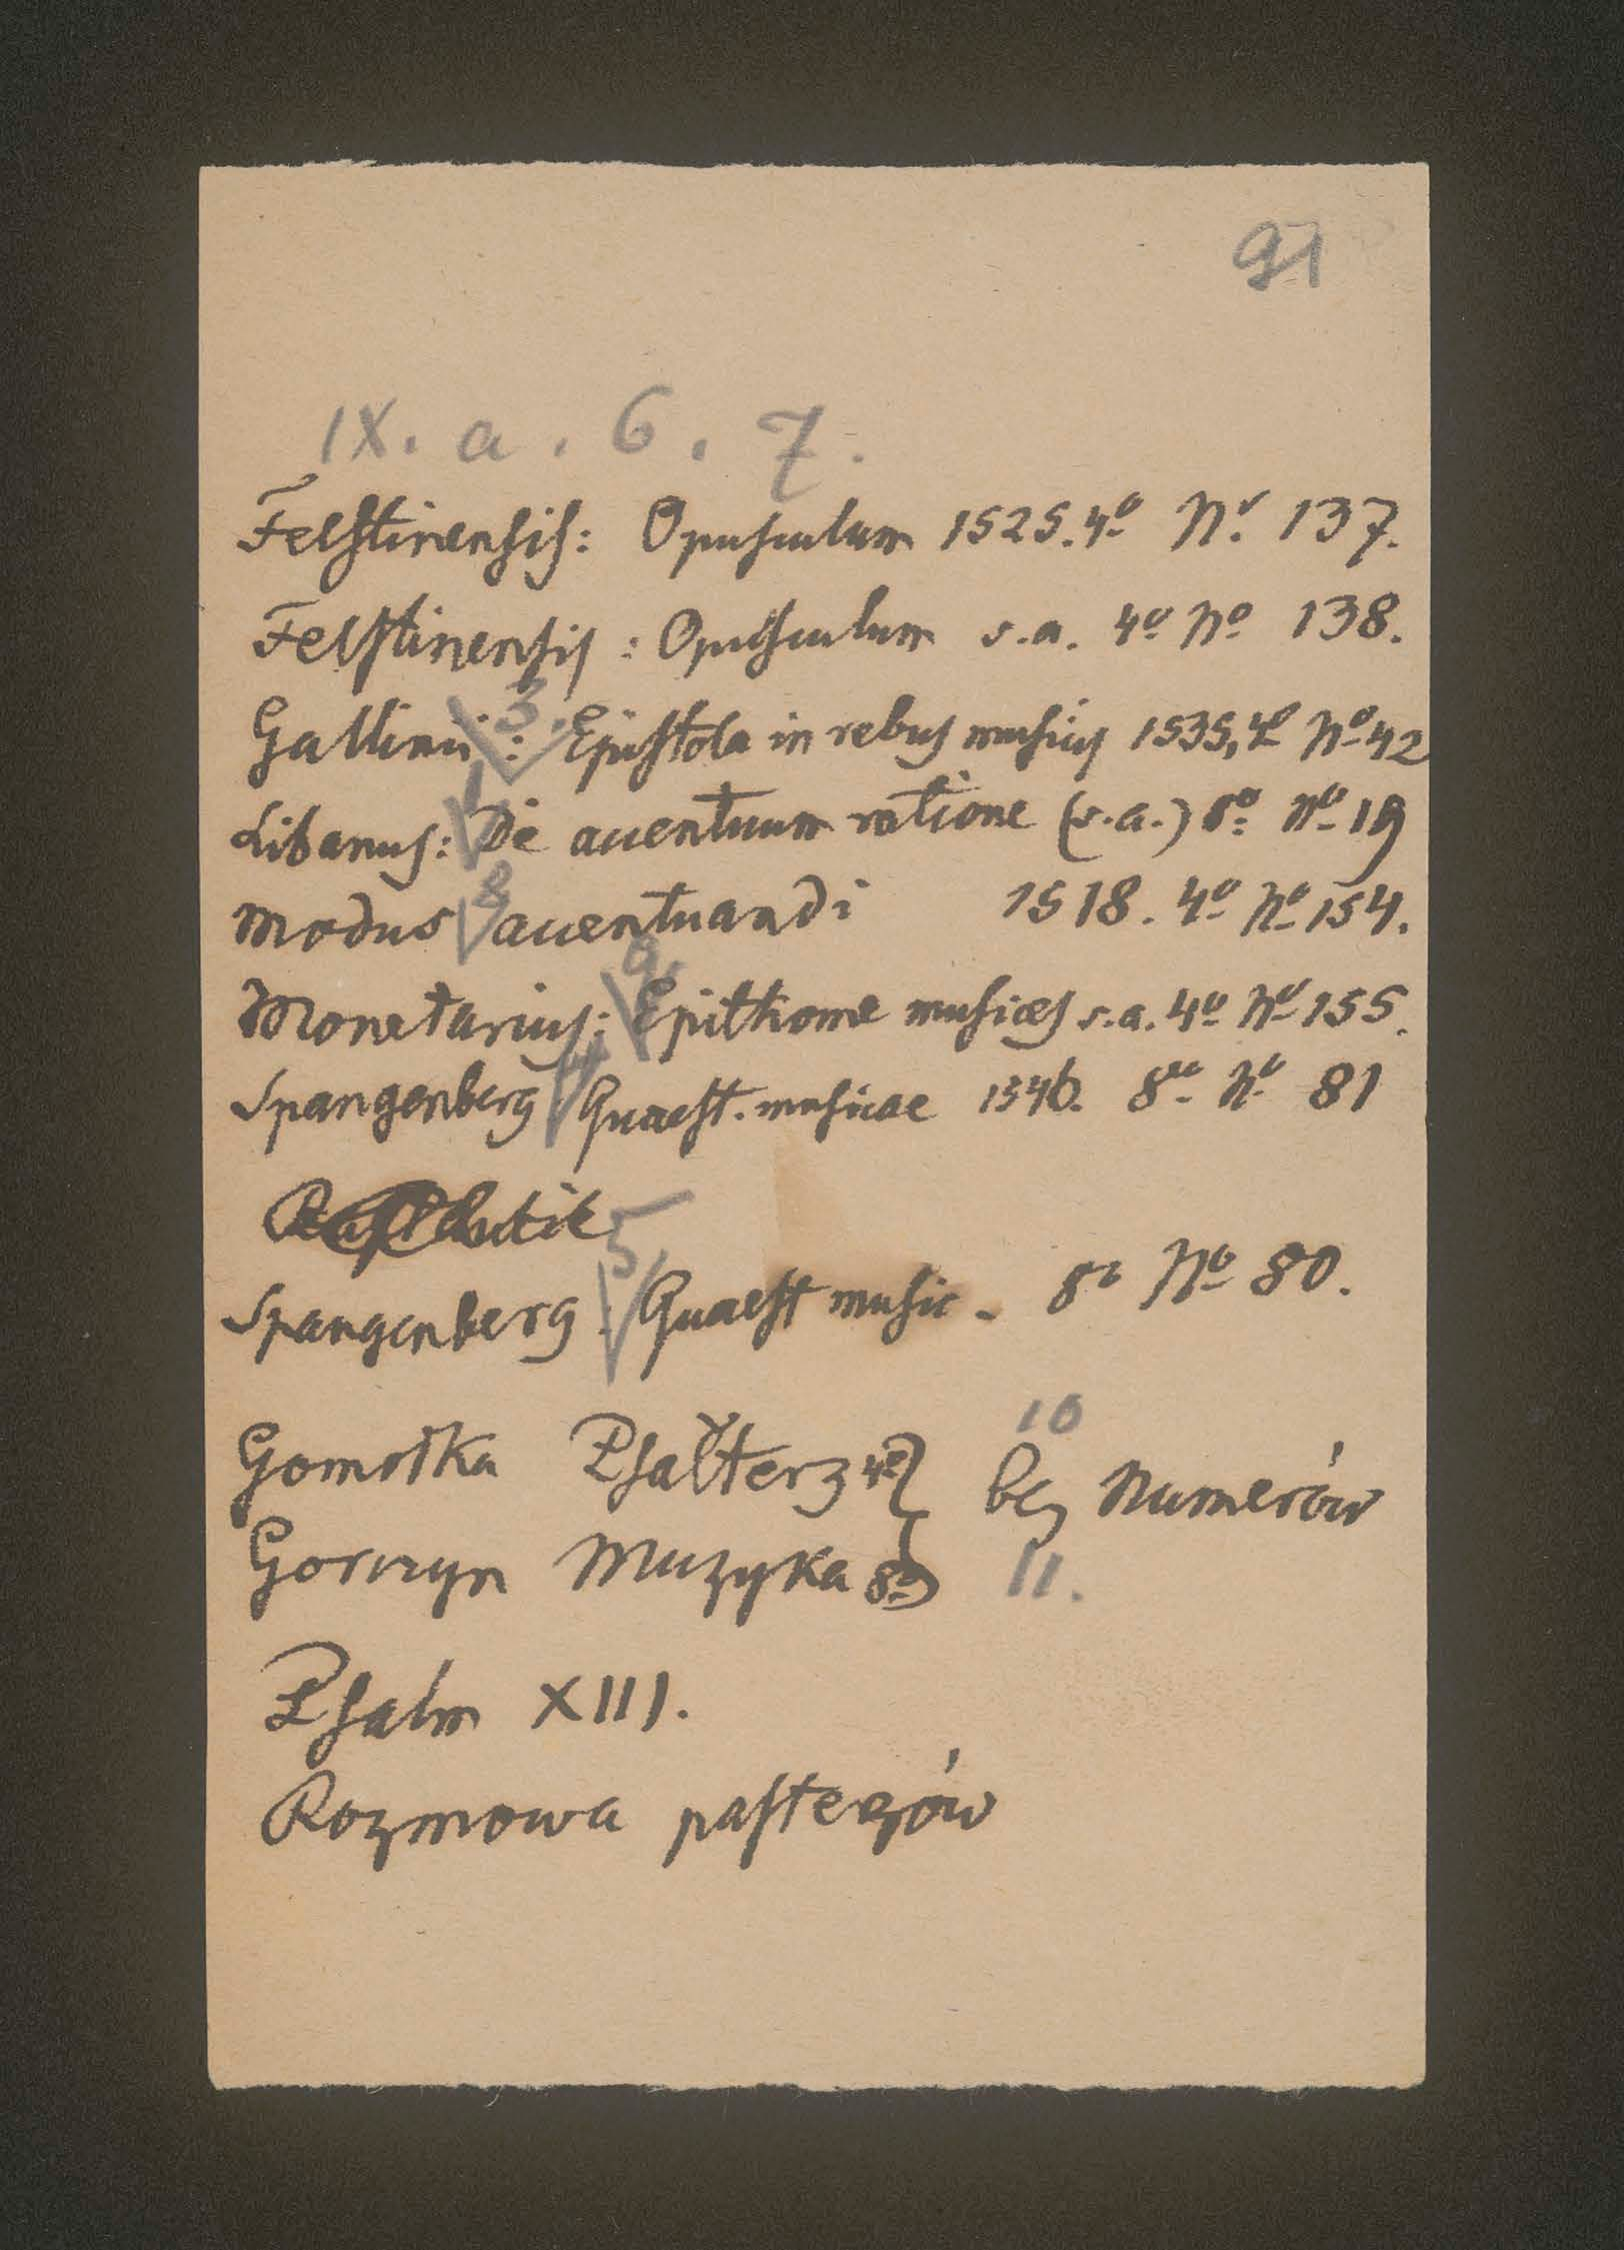 91
IX. a. 6. 7.
Felstinensis: Opusculum 1525. 4º Nº 137.
Felstinensis: Opusculum s.a. 4º Nº 138.
3.
Gallinii: Epistola in rebus musicis 1535, 4º Nº 42
1
Libanus: De accentuum ratione (s.a.) 8º Nº 19
8
Modus accentuandi 1518. 4º Nº 154.
9.
Monetarius: Epithome musices s.a. 4º Nº 155.
4
Spangenberg Quaest. musicae 1546. 8º Nº 81
5
Spangenberg: Quaest music. 8º Nº 80.
10
Gomółka Psałterz 4º bez Numerów
Gorczyn Muzyka 8º 11.
Psalm XIII.
Rozmowa pasterzów